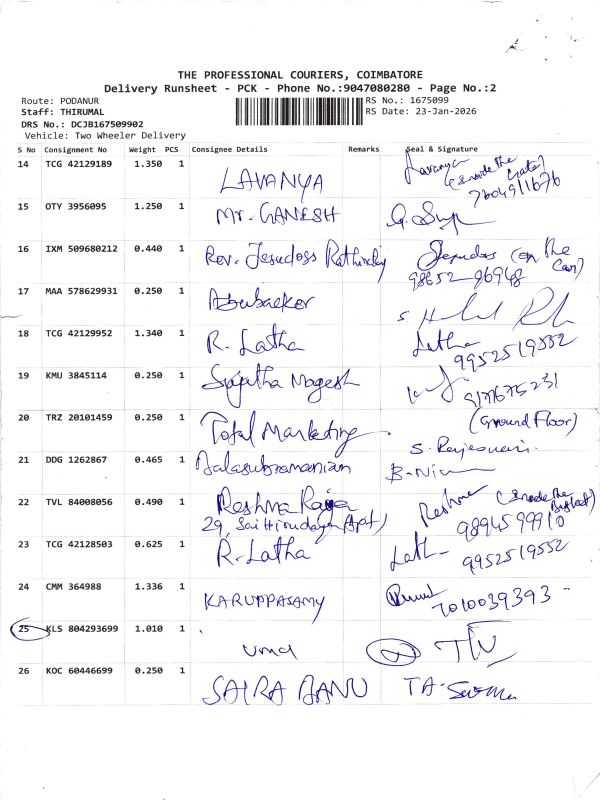 2
THE PROFESSIONAL COURIERS, COIMBATORE
Delivery Runsheet - PCK - Phone No.:9047080280 - Page No.:2
Route: PODANUR
RS No.: 1675099
Staff: THIRUMAL
RS Date: 23-Jan-2026
DRS No.: DCJB167509902
Vehicle: Two Wheeler Delivery
S No Consignment No Weight PCS Consignee Details Remarks Seal & Signature
14 TCG 42129189 1.350 1 LAVANYA Lavanya (Inside the Gate)
15 OTY 3956095 1.250 1 Mr. GANESH
16 IXM 509680212 0.440 1 Rev. Jesudoss Jesudos (on the Car)
98652-96948
17 MAA 578629931 0.250 1 Abubacker
18 TCG 42129952 1.340 1 R. Latha Latha
9952519552
19 KMU 3845114 0.250 1 Sujatha Magesh
20 TRZ 20101459 0.250 1 Total Marketing (Ground Floor)
S. Rajeswari
21 DDG 1262867 0.465 1 Balasubramanian
22 TVL 84008056 0.490 1 Reshma Raja Reshma (Inside the
29, Sai Hirudaya (Apt)
23 TCG 42128503 0.625 1 R. Latha Lath
9952519552
24 CMM 364988 1.336 1 KARUPPASAMY
7010039393
25 KLS 804293699 1.010 1 Uma
26 KOC 60446699 0.250 1 SAIRA BANU